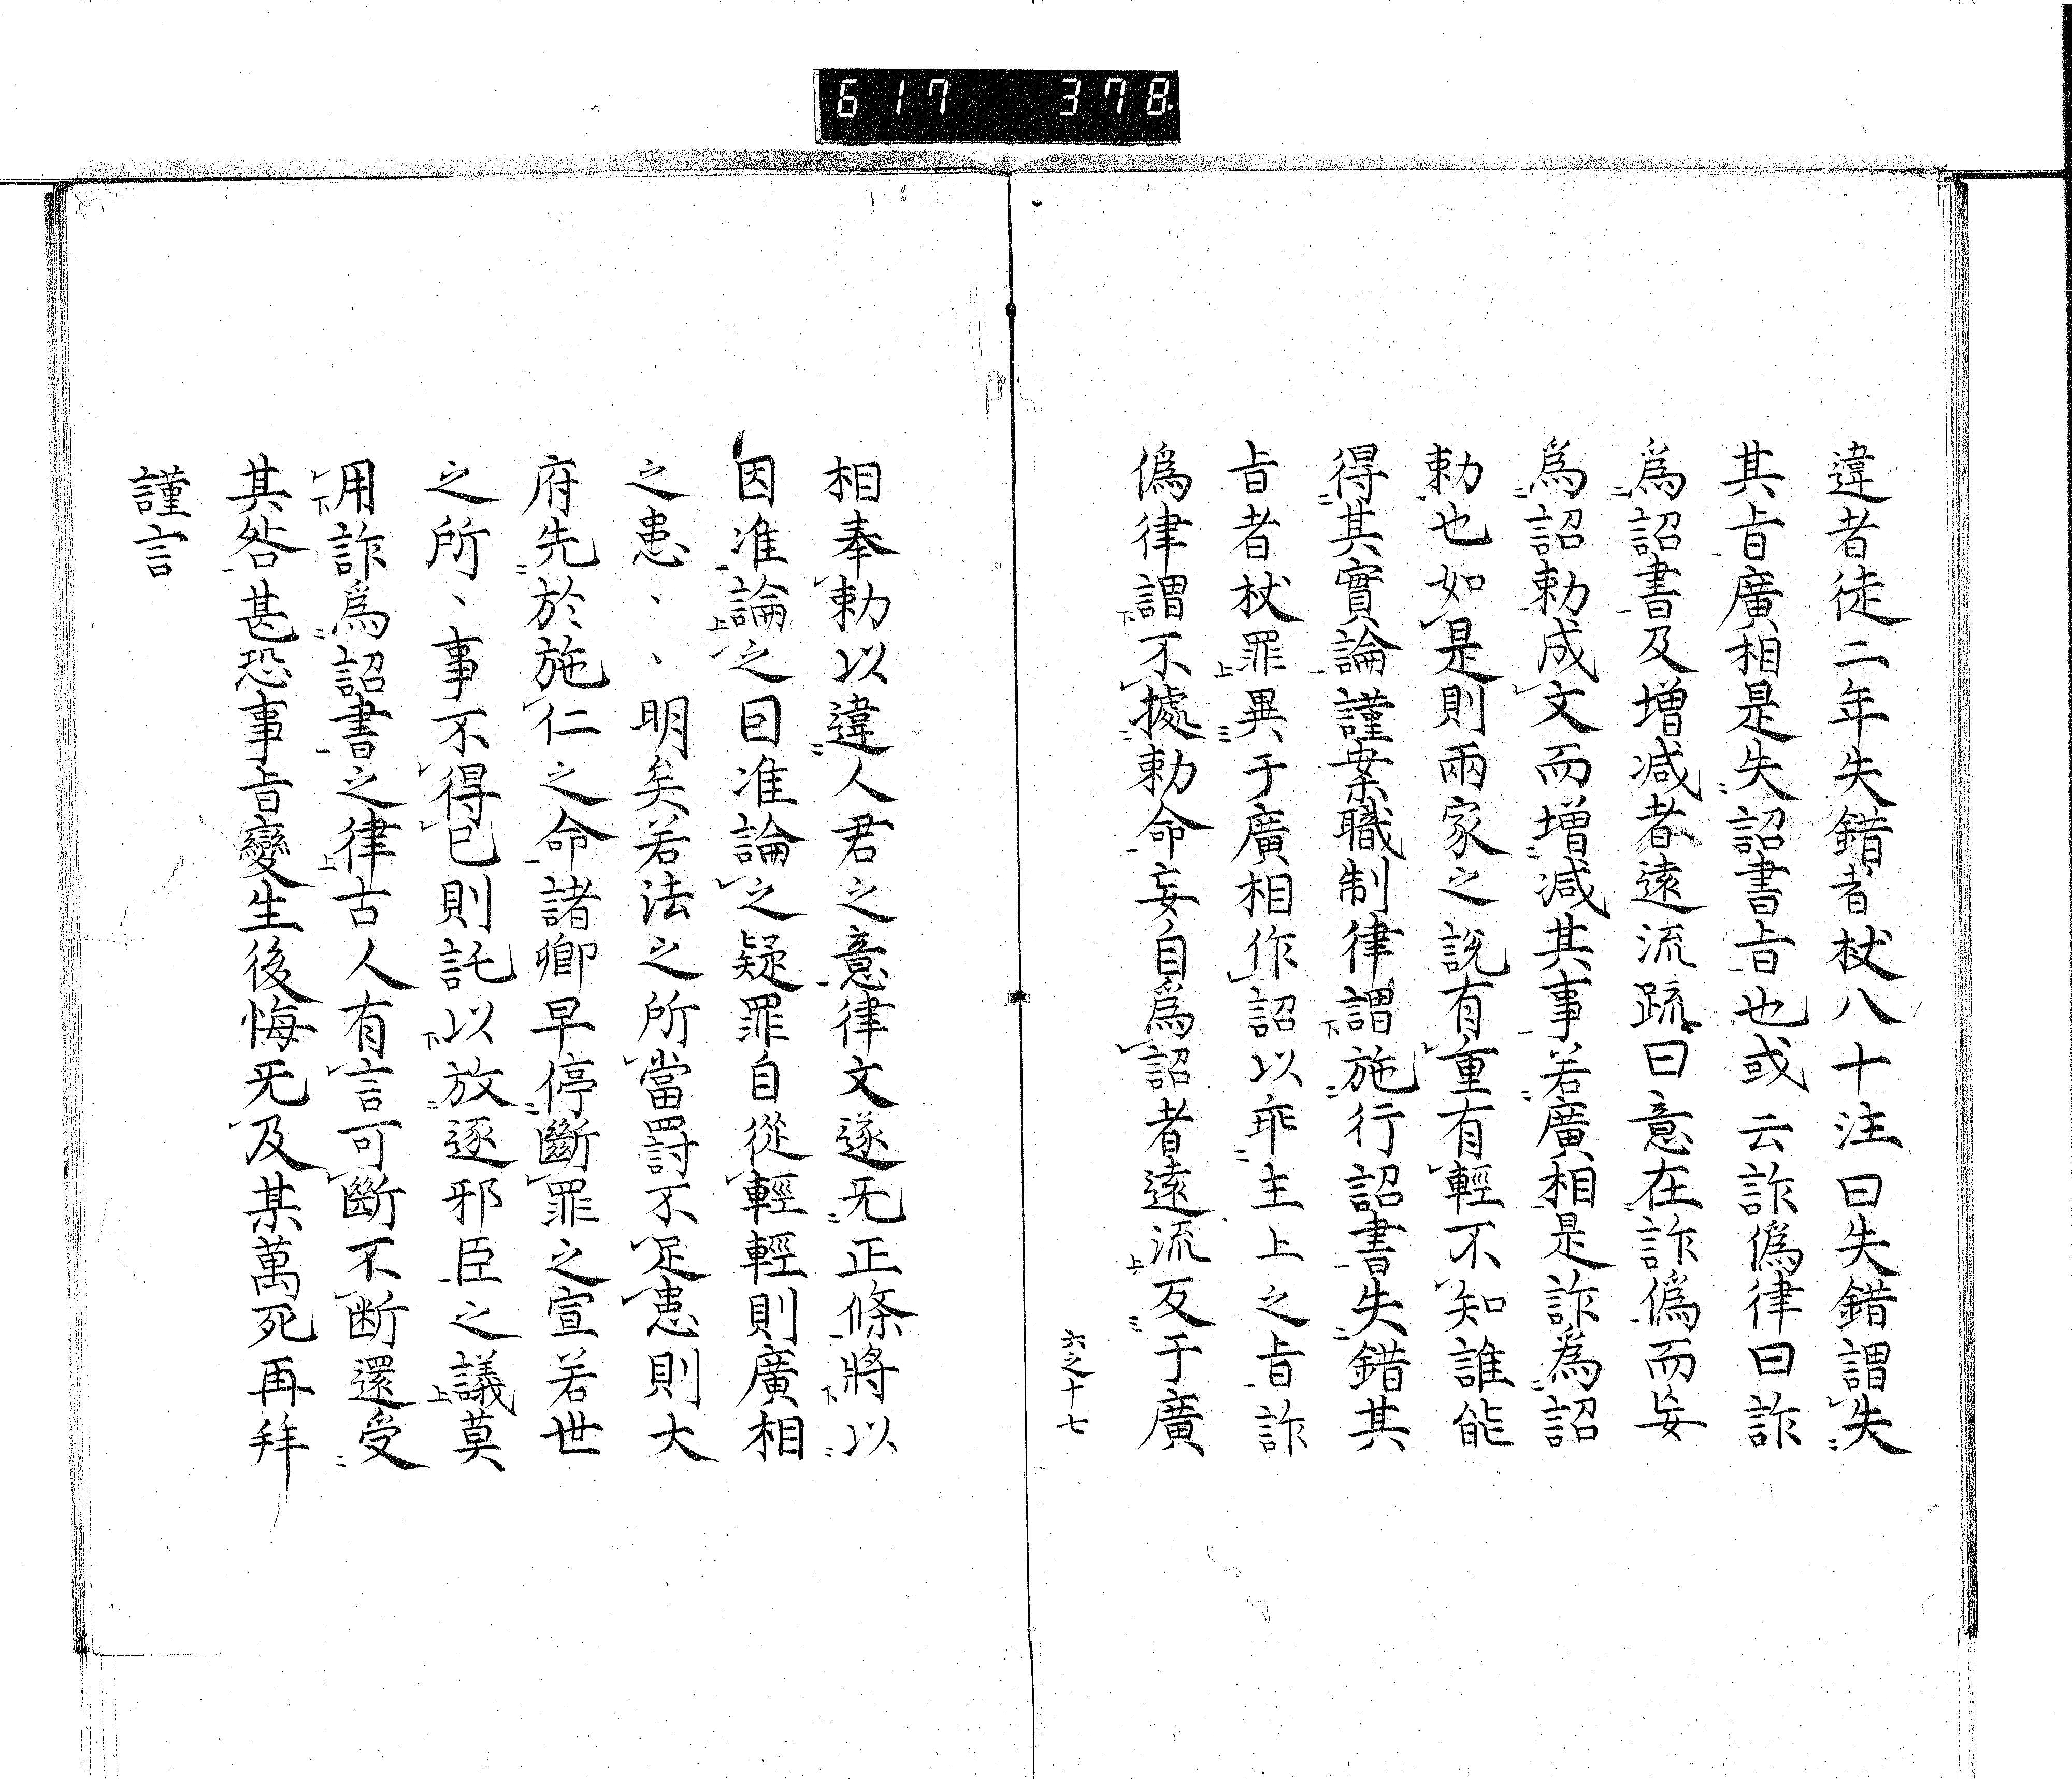 617 378
違者徒二年失錯者杖八十注曰失錯謂失
其旨廣相是失詔書旨也或云詐僞律曰詐
爲詔書及増减者遠流疏曰意在詐僞而妄
爲詔勅成文而増减其事若廣相是詐爲詔
勅也如是則兩家之說有重有輕不知誰能
得其實論謹案職制律謂施行詔書失錯其
旨者杖罪異于廣相作詔以乖主上之旨詐
僞律謂不據勅命妄自爲詔者遠流反于廣
六之十七
相奉勅以違人君之意律文遂无正條將以
因准論之曰准論之疑罪自從輕輕則廣相
之患、、、明矣若法之所當罸不足患則大
府先於施仁之命諸卿早停斷罪之宣若世
之所、事不得已則託以放逐邪臣之議莫
用詐爲詔書之律古人有言可斷不断還受
其咎甚恐事旨變生後悔无及某萬死再拜
謹言